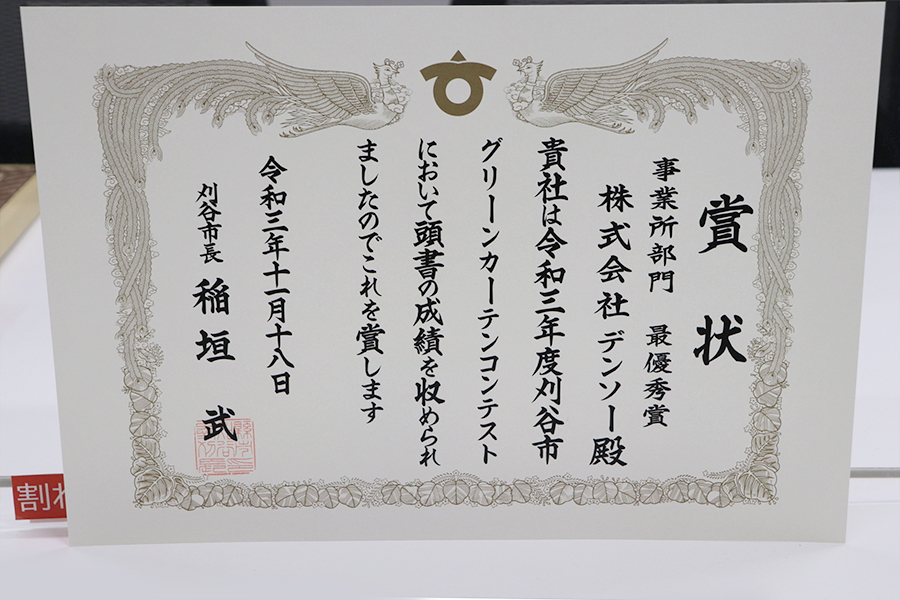 賞状
事業所部門 最優秀賞
株式会社デンソー殿
貴社は令和三年度刈谷市
グリーンカーテンコンテスト
において頭書の成績を収められ
ましたのでこれを賞します
令和三年十一月十八日
刈谷市長 稲垣 武
割れ